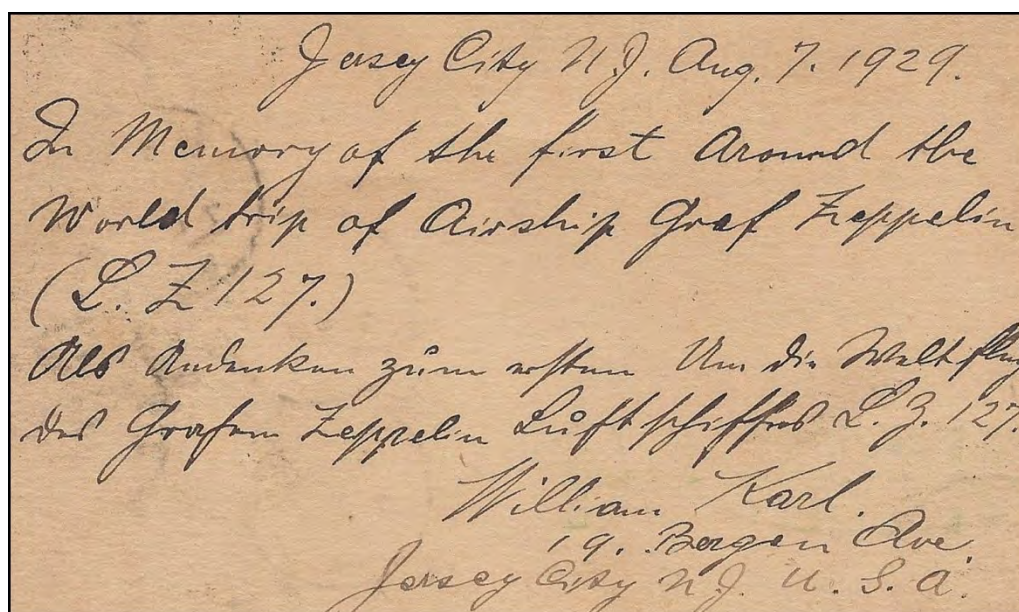 Jersey City N.J. Aug. 7. 1929.
In Memory of the first Around the
World trip of Airship Graf Zeppelin
(L. Z 127.)
Als Andenken zum ersten Um die Welt flug
des Grafen Zeppelin Luftschiffes L. Z. 127.
William Karl.
19. Bergen Ave.
Jersey City N.J. U. S. A.